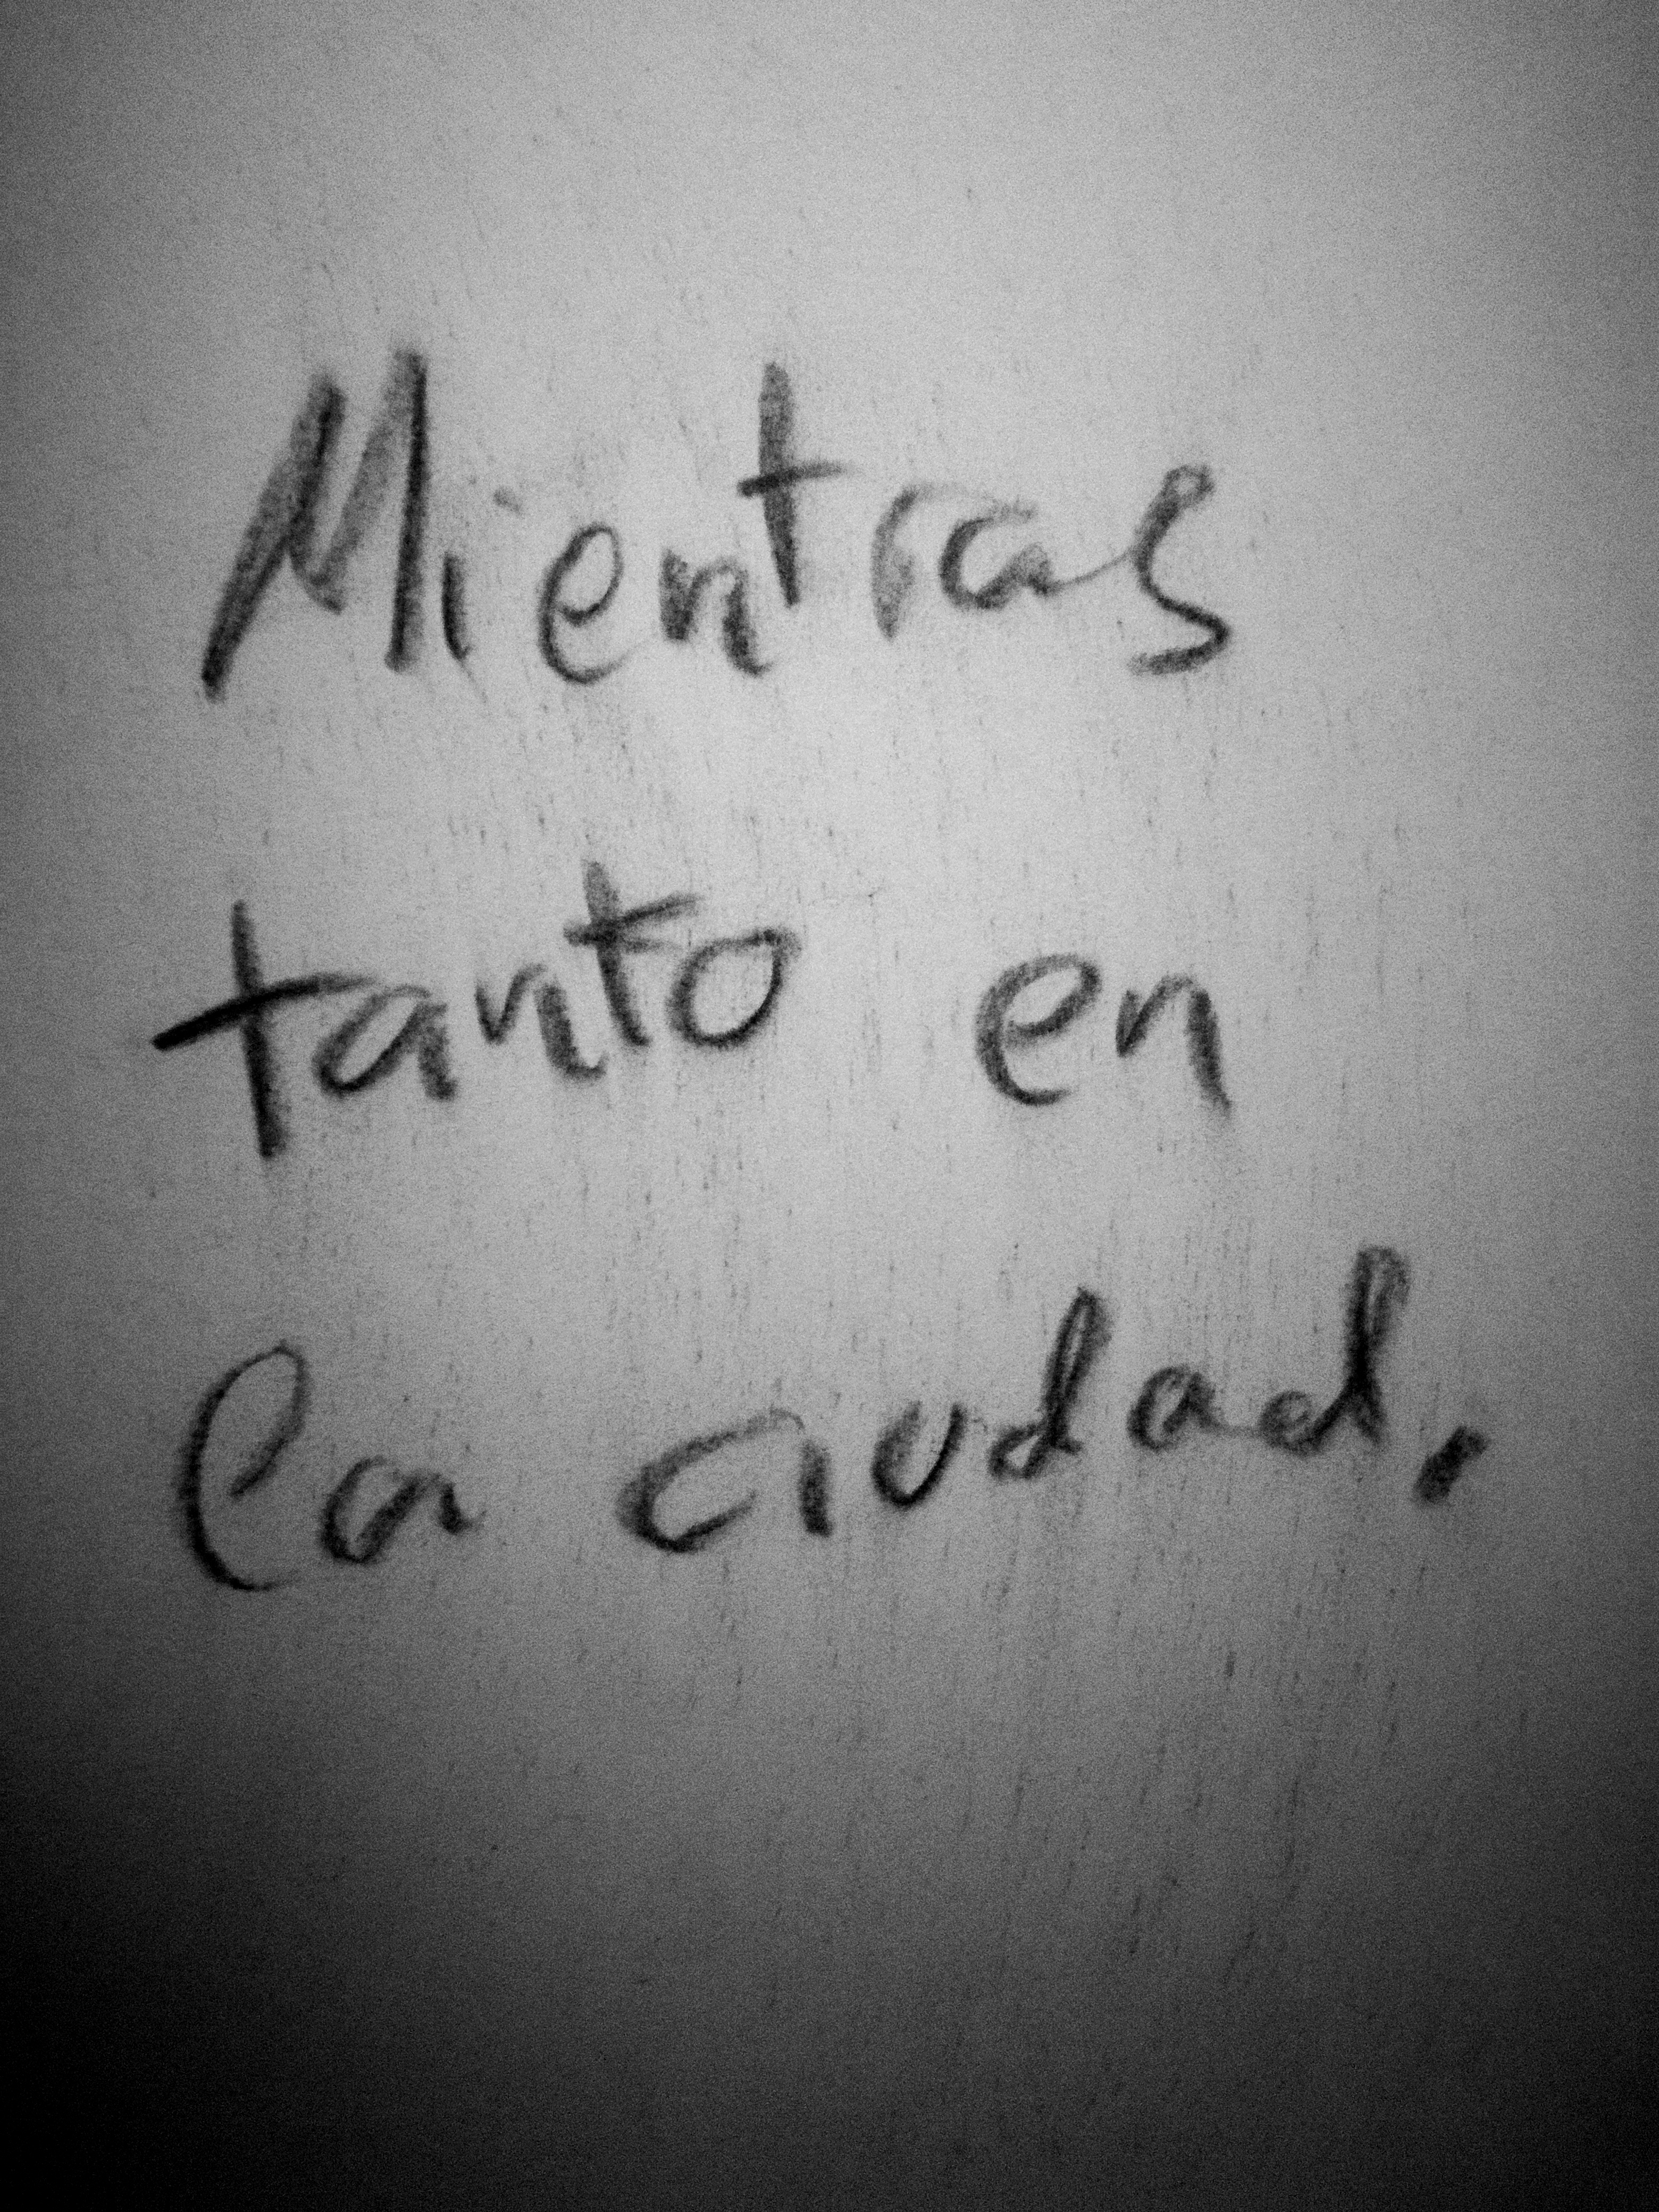 Mientras
tanto en
la ciudad.